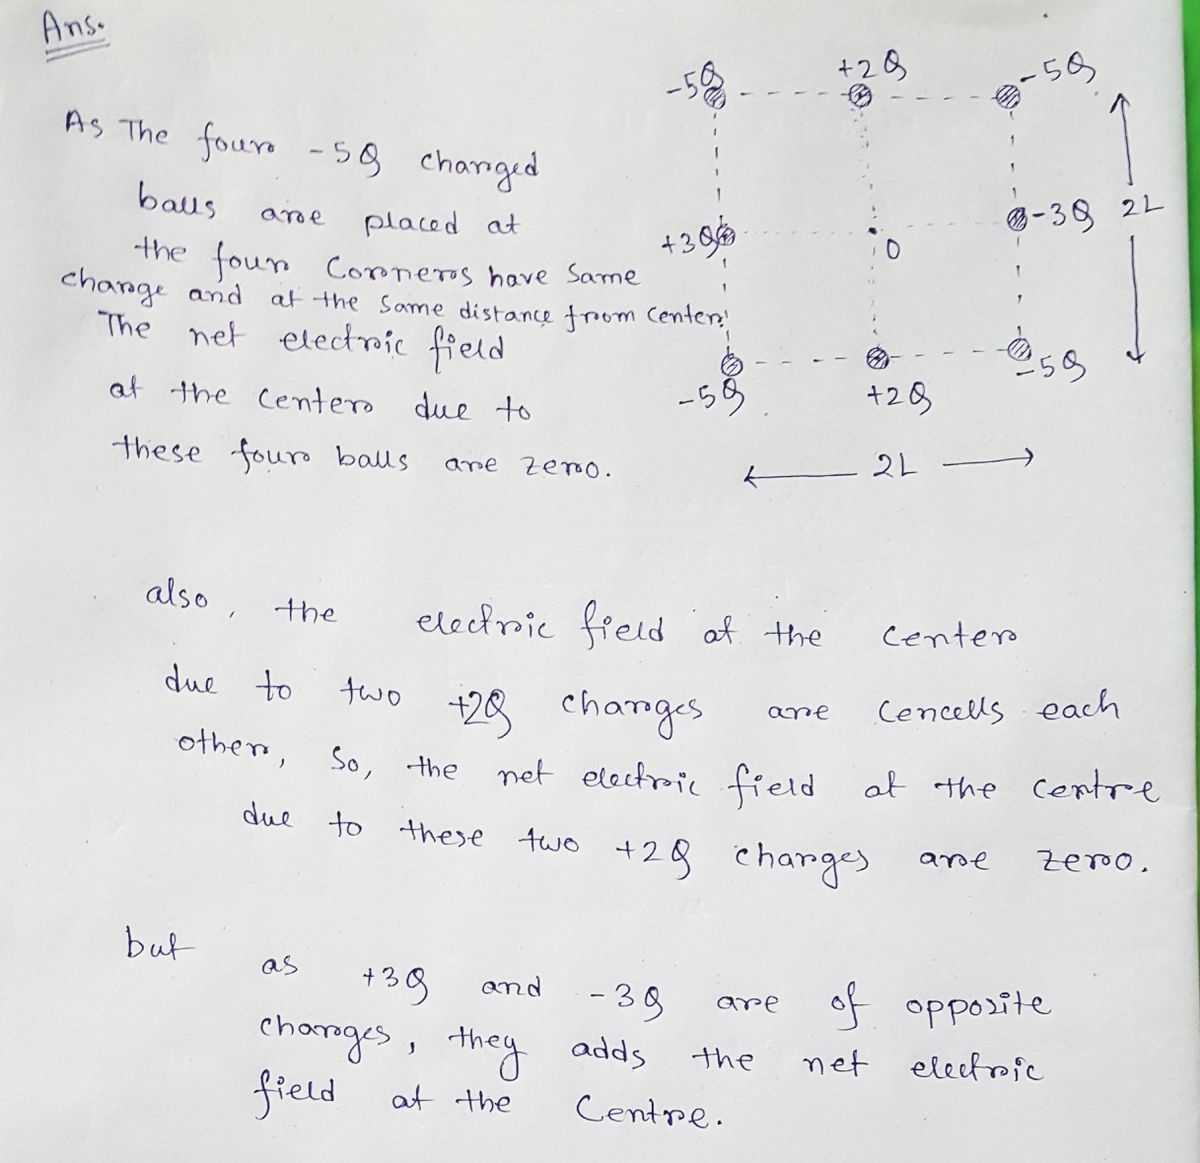 Ans.
-5Q +2Q -5Q
As The four -5Q charged
balls are placed at
+3Q O -3Q 2L
the four Corners have same
charge and at the same distance from center.
The net electric field
at the center due to
-5Q +2Q -5Q
these four balls are zero.
2L
also, the electric field at the center
due to two +2Q charges are cencells each
other, So, the net electric field at the centre
due to these two +2Q charges are zero.
but as +3Q and -3Q are of opposite
charges, they adds the net electric
field at the Centre.